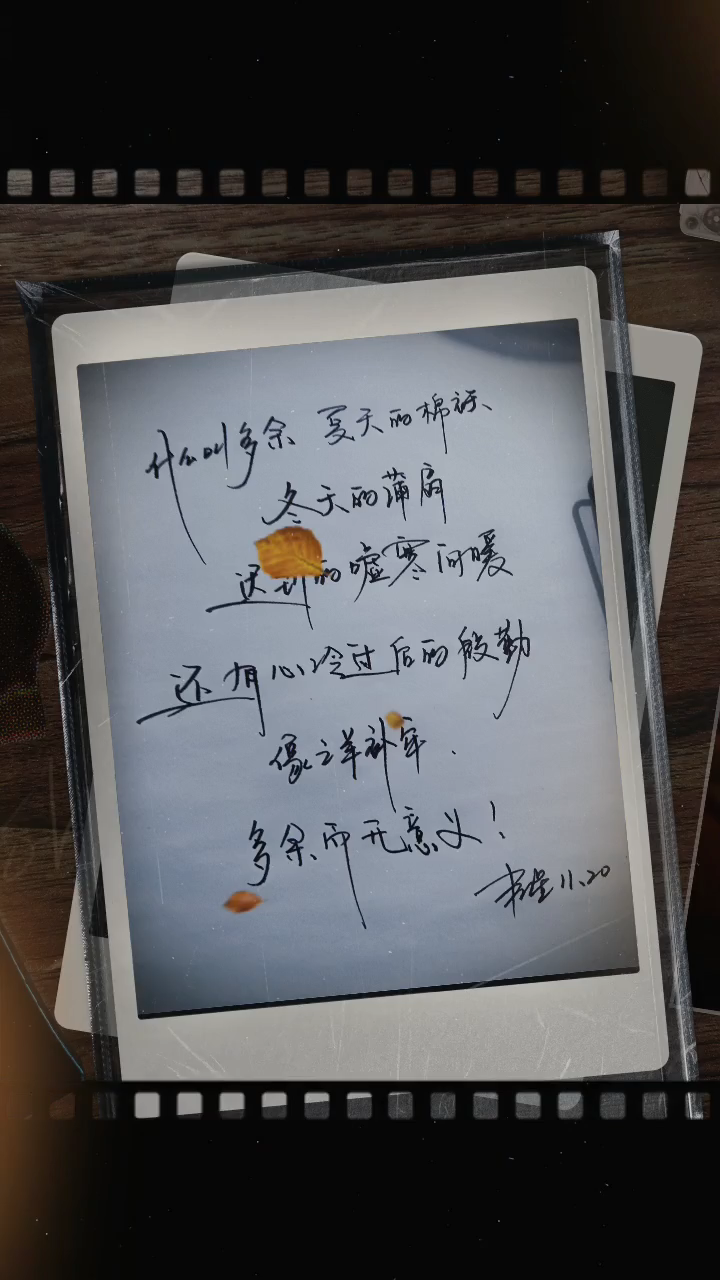 什么叫多余 夏天的棉袄
冬天的蒲扇
迟到的嘘寒问暖
还有心冷过后的殷勤
像亡羊补牢.
多余而无意义!
11.20